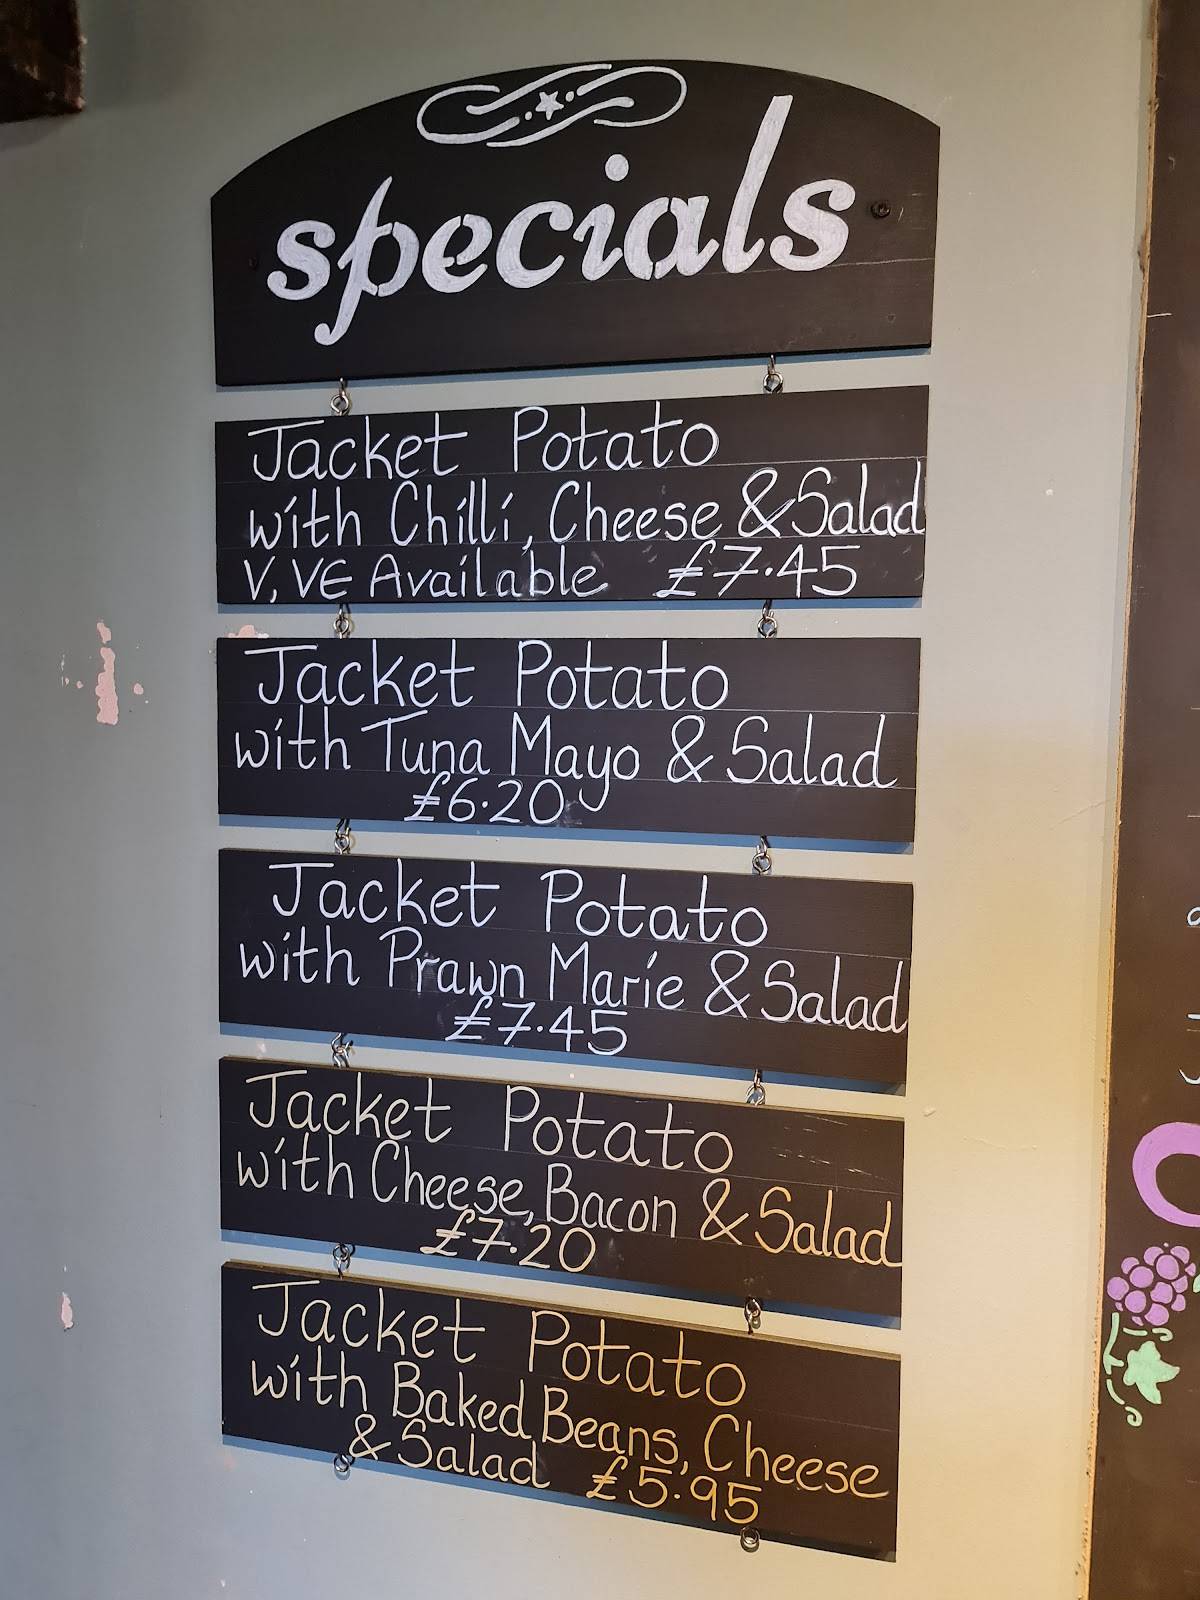 specials
Jacket Potato
with Chilli, Cheese & Salad
V, VE Available £7.45
Jacket Potato
with Tuna Mayo & Salad
£6.20
Jacket Potato
with Prawn Marie & Salad
£7.45
Jacket Potato
with Cheese, Bacon & Salad
£7.20
Jacket Potato
with Baked Beans, Cheese
& Salad £5.95